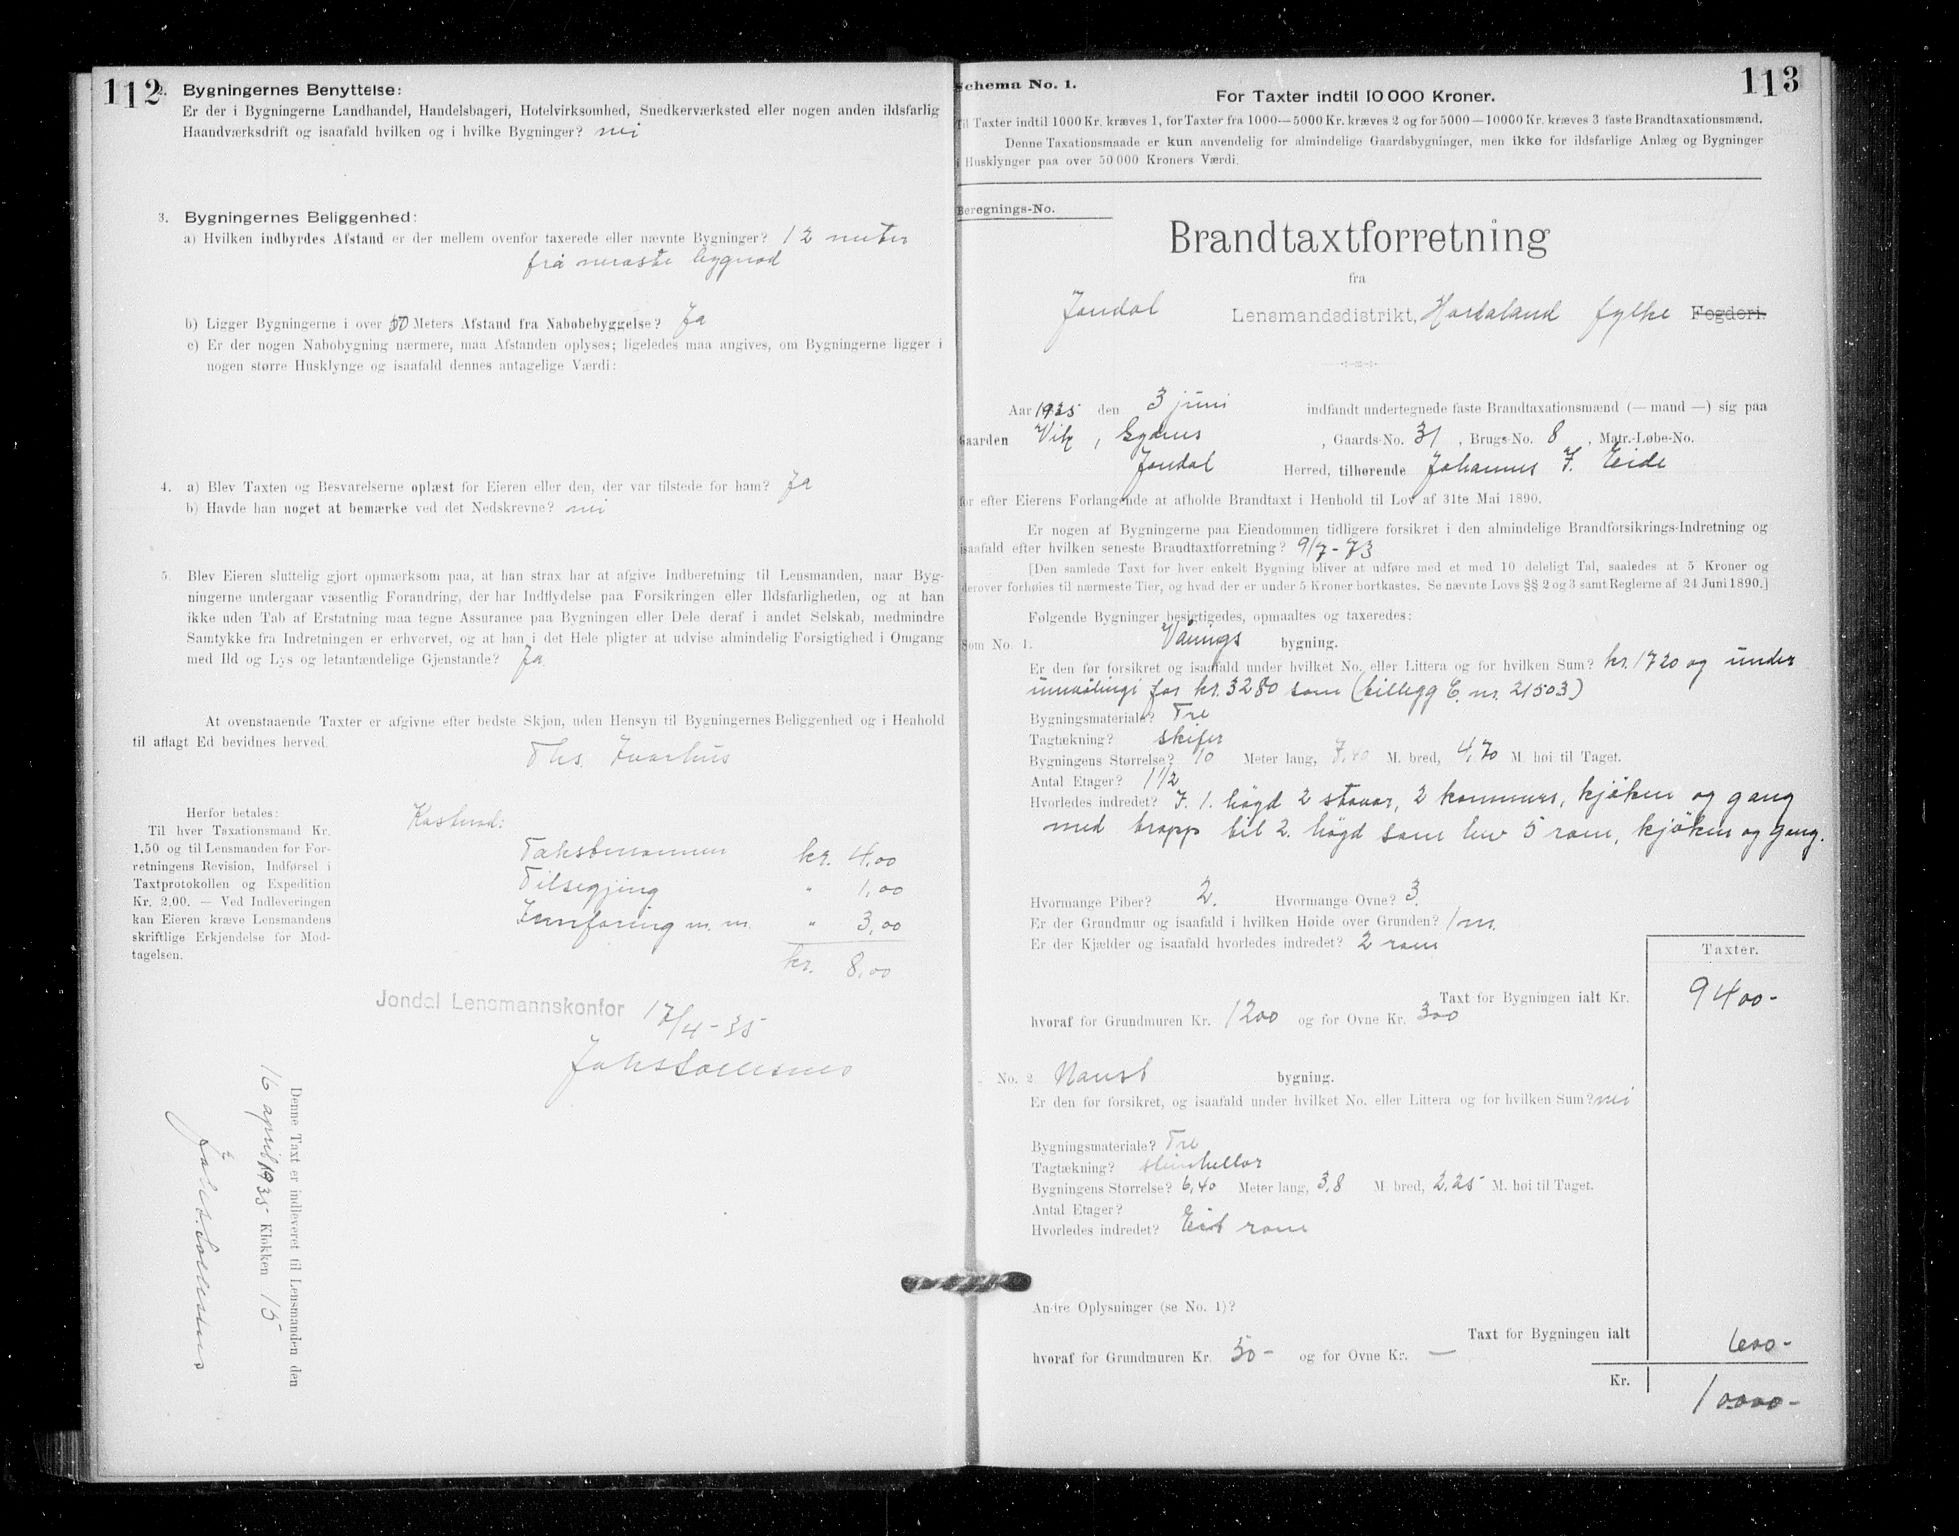 112
2. Bygningernes Benyttelse:
Er der i Bygningerne Landhandel, Handelsbageri, Hotelvirksomhed, Snedkerværksted eller nogen anden ildsfarlig
Haandværksdrift og isaafald hvilken og i hvilke Bygninger? nei
3. Bygningernes Beliggenhed:
a) Hvilken indbyrdes Afstand er der mellem ovenfor taxerede eller nævnte Bygninger? 12 meter
frå næraste bygnad
b) Ligger Bygningerne i over 50 Meters Afstand fra Nabobebyggelse? Ja
c) Er der nogen Nabobygning nærmere, maa Afstanden oplyses; ligeledes maa angives, om Bygningerne ligger i
nogen større Husklynge og isaafald dennes antagelige Værdi:
4. a) Blev Taxten og Besvarelserne oplæst for Eieren eller den, der var tilstede for ham? Ja
b) Havde han noget at bemærke ved det Nedskrevne? nei
5. Blev Eieren sluttelig gjort opmærksom paa, at han strax har at afgive Indberetning til Lensmanden, naar Byg-
ningerne undergaar væsentlig Forandring, der har Indflydelse paa Forsikringen eller Ildsfarligheden, og at han
ikke uden Tab af Erstatning maa tegne Assurance paa Bygningen eller Dele deraf i andet Selskab, medmindre
Samtykke fra Indretningen er erhvervet, og at han i det Hele pligter at udvise almindelig Forsigtighed i Omgang
med Ild og Lys og letantændelige Gjenstande? Ja
At ovenstaaende Taxter er afgivne efter bedste Skjøn, uden Hensyn til Bygningernes Beliggenhed og i Henhold
til aflagt Ed bevidnes herved.
Ths.
Herfor betales:
Til hver Taxationsmand Kr.
1.50 og til Lensmanden for For-
retningens Revision, Indførsel i
Taxtprotokollen og Expedition
Kr. 2.00. — Ved Indleveringen
kan Eieren kræve Lensmandens
skriftlige Erkjendelse for Mod-
tagelsen.
Kostnad:
Takstmannen kr. 4,00
Tilsegjing " 1,00
Innføring m. m. " 3,00
kr. 8,00
Jondal Lensmannskontor 17/4-35
Denne Taxt er indleveret til Lensmanden den
16 april 1935 Klokken 15
113
Schema No. 1.
For Taxter indtil 10 000 Kroner.
Til Taxter indtil 1000 Kr. kræves 1, for Taxter fra 1000—5000 Kr. kræves 2 og for 5000—10000 Kr. kræves 3 faste Brandtaxationsmænd.
Denne Taxationsmaade er kun anvendelig for almindelige Gaardsbygninger, men ikke for ildsfarlige Anlæg og Bygninger
i Husklynger paa over 50 000 Kroners Værdi.
Beregnings-No.
Brandtaxtforretning
fra
Jondal Lensmandsdistrikt, Hordaland fylke Fogderi.
Aar 1935 den 3 juni indfandt undertegnede faste Brandtaxationsmænd (— mand —) sig paa
Gaarden Vik, , Gaards-No. 31, Brugs-No. 8, Matr.-Løbe-No.
Jondal Herred, tilhørende Johannes J. Eide
for efter Eierens Forlangende at afholde Brandtaxt i Henhold til Lov af 31te Mai 1890.
Er nogen af Bygningerne paa Eiendommen tidligere forsikret i den almindelige Brandforsikrings-Indretning og
isaafald efter hvilken seneste Brandtaxtforretning? 9/7-73
[Den samlede Taxt for hver enkelt Bygning bliver at udføre med et med 10 deleligt Tal, saaledes at 5 Kroner og
derover forhøies til nærmeste Tier, og hvad der er under 5 Kroner bortkastes. Se nævnte Lovs §§ 2 og 3 samt Reglerne af 24 Juni 1890.]
Følgende Bygninger besigtigedes, opmaaltes og taxeredes:
Som No. 1. Vånings bygning.
Er den før forsikret og isaafald under hvilket No. eller Littera og for hvilken Sum? kr. 1720 og under
for kr. 3280 som (tillegg E. nr. 21503)
Bygningsmateriale? Tre
Tagtækning? skifer
Bygningens Størrelse? 10 Meter lang, 7,40 M. bred, 4,70 M. høi til Taget.
Antal Etager? 1 1/2
Hvorledes indredet? I 1. høgd 2 stovor, 2 kammers, kjøken og gang
med tropp til 2. høgd som hev 5 rom, kjøken og gang.
Hvormange Piber? 2. Hvormange Ovne? 3.
Er der Grundmur og isaafald i hvilken Høide over Grunden? 1 m.
Er der Kjælder og isaafald hvorledes indredet? 2 rom
Taxter.
Taxt for Bygningen ialt Kr. 9400-
hvoraf for Grundmuren Kr. 1200 og for Ovne Kr. 300
No. 2. Naust bygning.
Er den før forsikret, og isaafald under hvilket No. eller Littera og for hvilken Sum? nei
Bygningsmateriale? Tre
Tagtækning? steinhellor
Bygningens Størrelse? 6,40 Meter lang, 3,8 M. bred, 2,25 M. høi til Taget.
Antal Etager?
Hvorledes indredet? Eit rom
Andre Oplysninger (se No. 1)?
Taxt for Bygningen ialt 600-
hvoraf for Grundmuren Kr. 50- og for Ovne Kr. —
Kr. 10000-